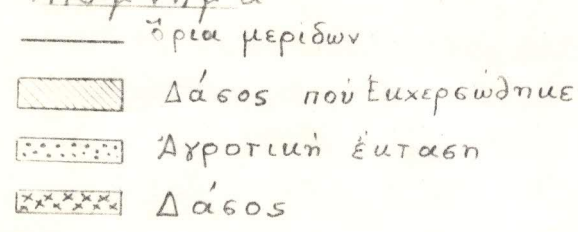 Ὑπόμνημα
ὅρια μερίδων
Δάσος πού ἐκχερσώθηκε
Ἀγροτική ἔκταση
Δάσος